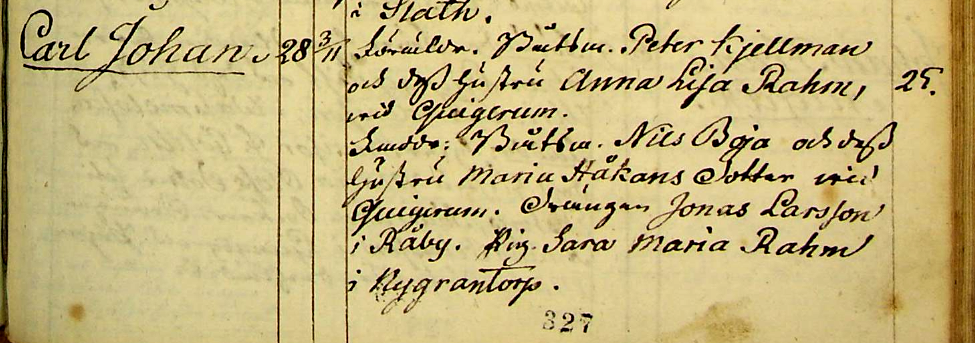 i Slath.
Carl Johan. 28 3/11 Föräldr. Båtsm. Peter Kjellman
och deß hustru Anna Lisa Rahm, 25.
wid Quigerum.
Faddr: Båtsm. Nils Boja och deß
hustru Maria Håkans Dotter wid
Quigerum. Drängen Jonas Larsson
i Råby. Pig. Sara Maria Rahm
i Nygrantorp.
327